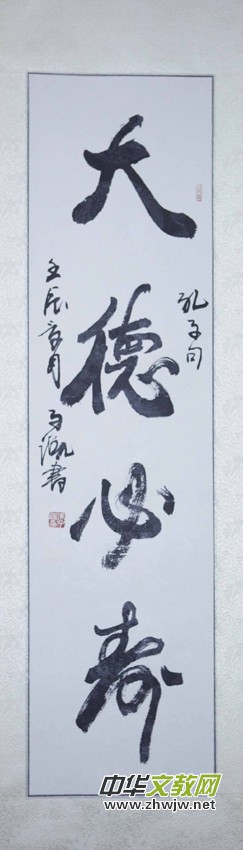 大德必寿
孔子句
壬辰
书
中华文教网
www.zhwjw.net